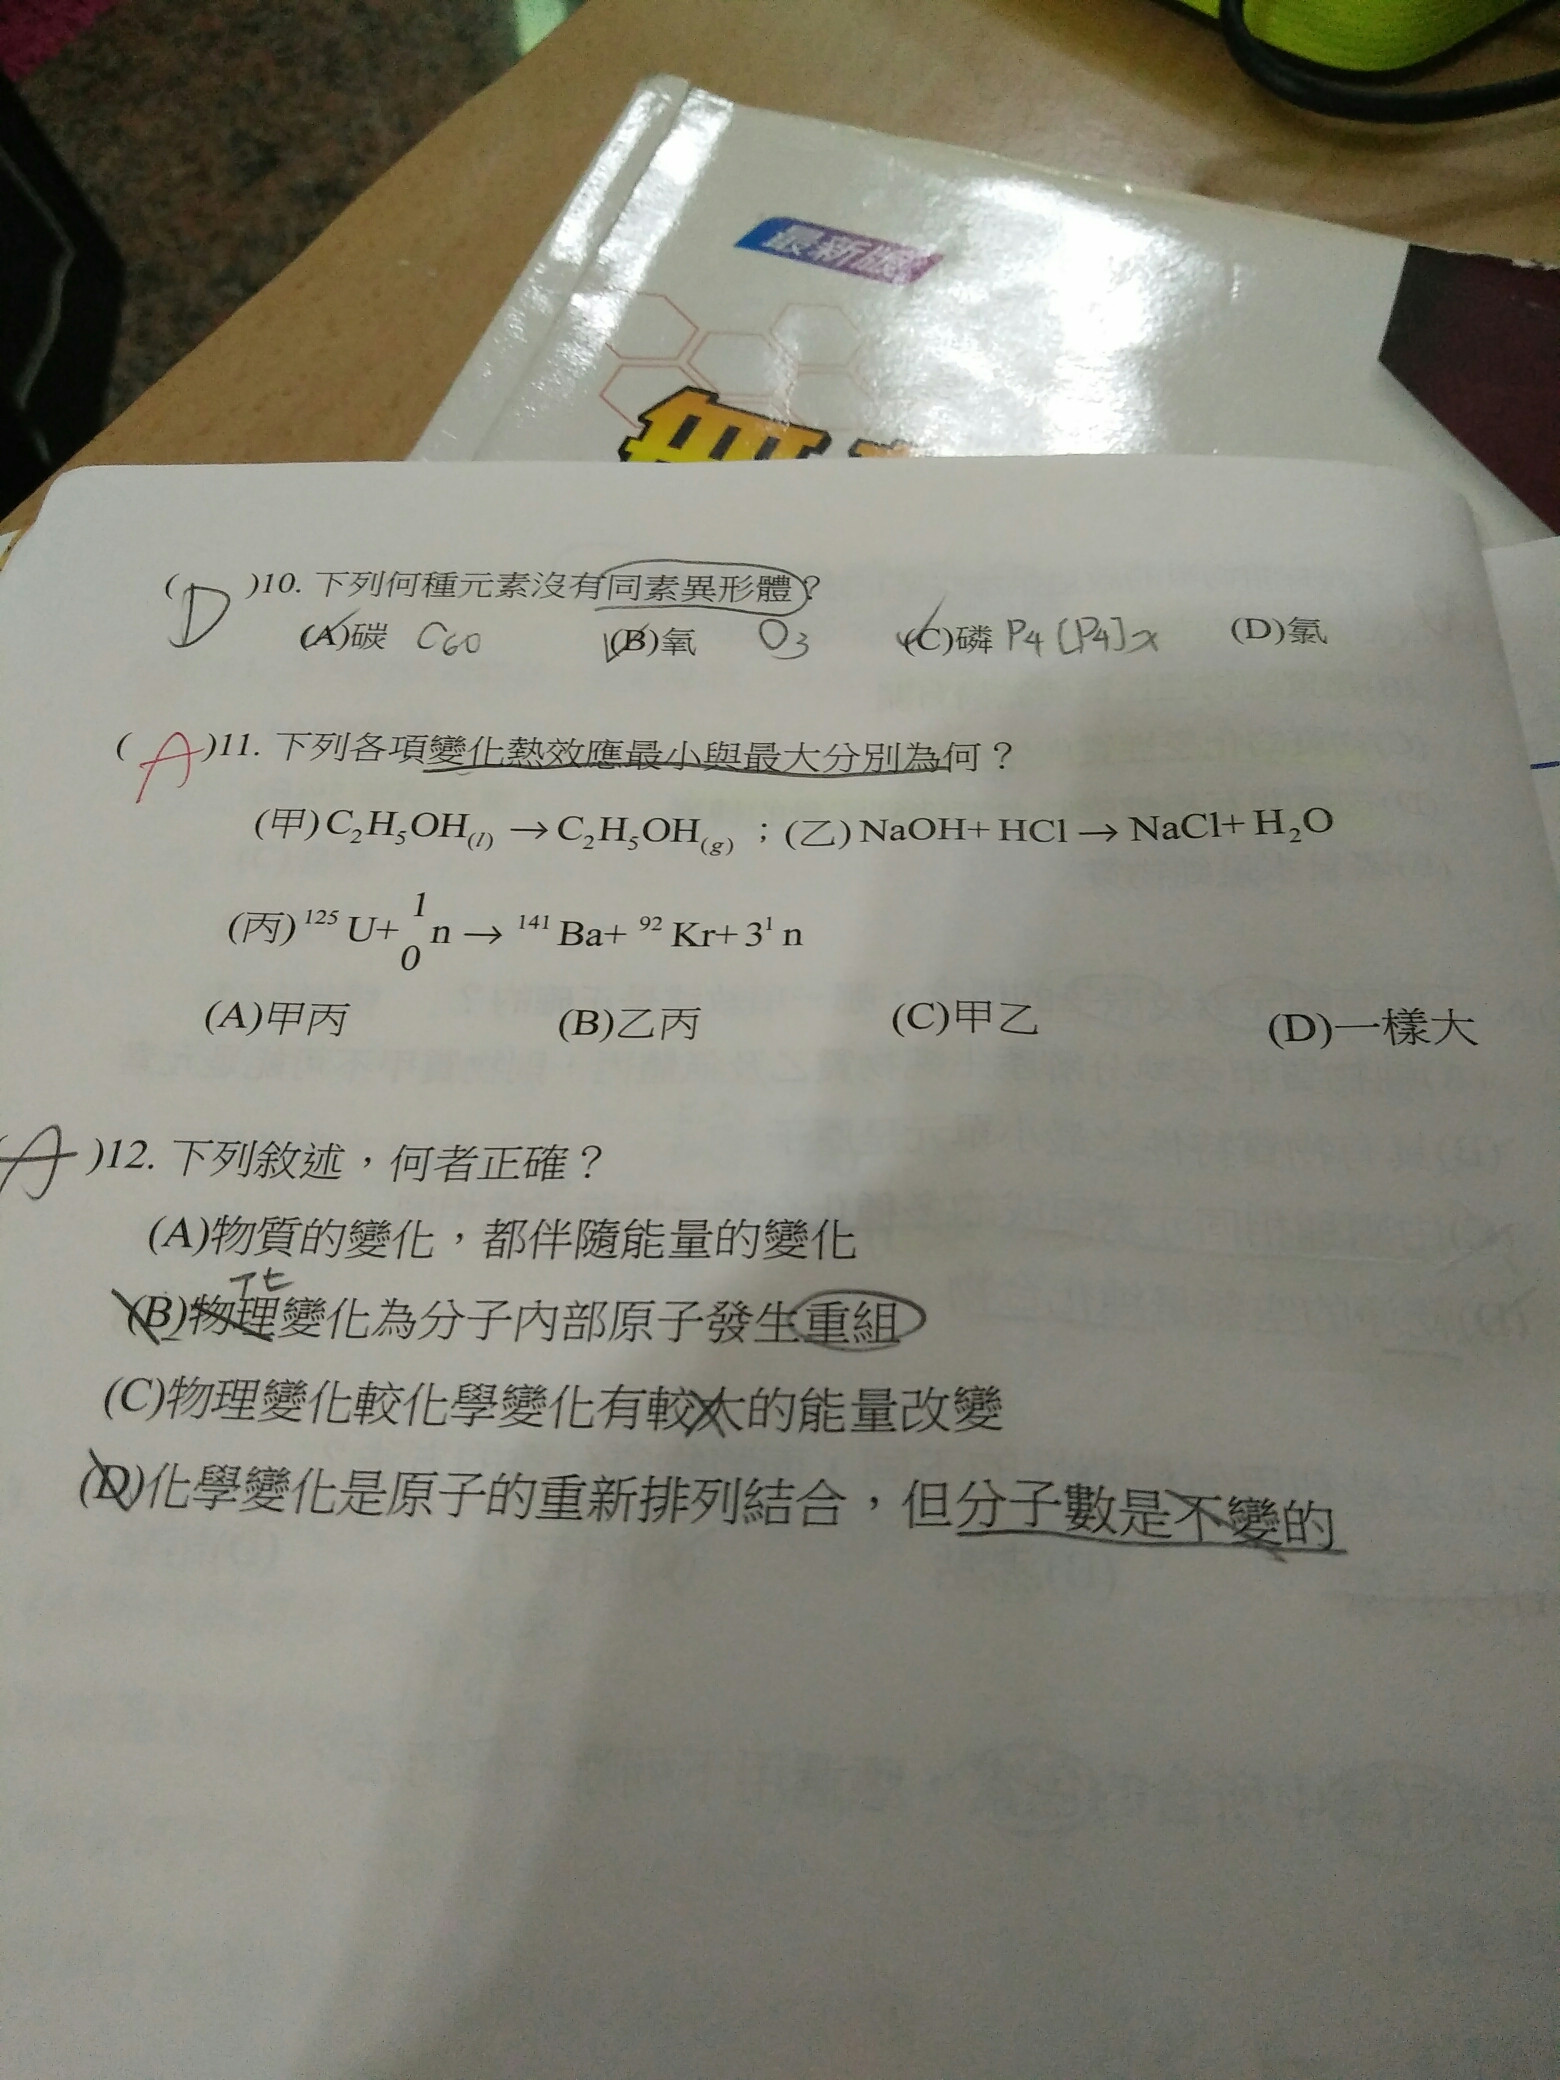 最新版
(D)10. 下列何種元素沒有同素異形體?
(A)碳 C60 (B)氧 O3 (C)磷 P4 [P4]x (D)氯
(A)11. 下列各項變化熱效應最小與最大分別為何?
(甲)C₂H₅OH(l) → C₂H₅OH(g) ; (乙) NaOH+ HCl → NaCl+ H₂O
(丙) ¹²⁵ U+ ¹₀n → ¹⁴¹ Ba+ ⁹² Kr+ 3¹ n
(A)甲丙 (B)乙丙 (C)甲乙 (D)一樣大
(A)12. 下列敘述,何者正確?
(A)物質的變化,都伴隨能量的變化
化
(B)物理變化為分子內部原子發生重組
(C)物理變化較化學變化有較大的能量改變
(D)化學變化是原子的重新排列結合,但分子數是不變的